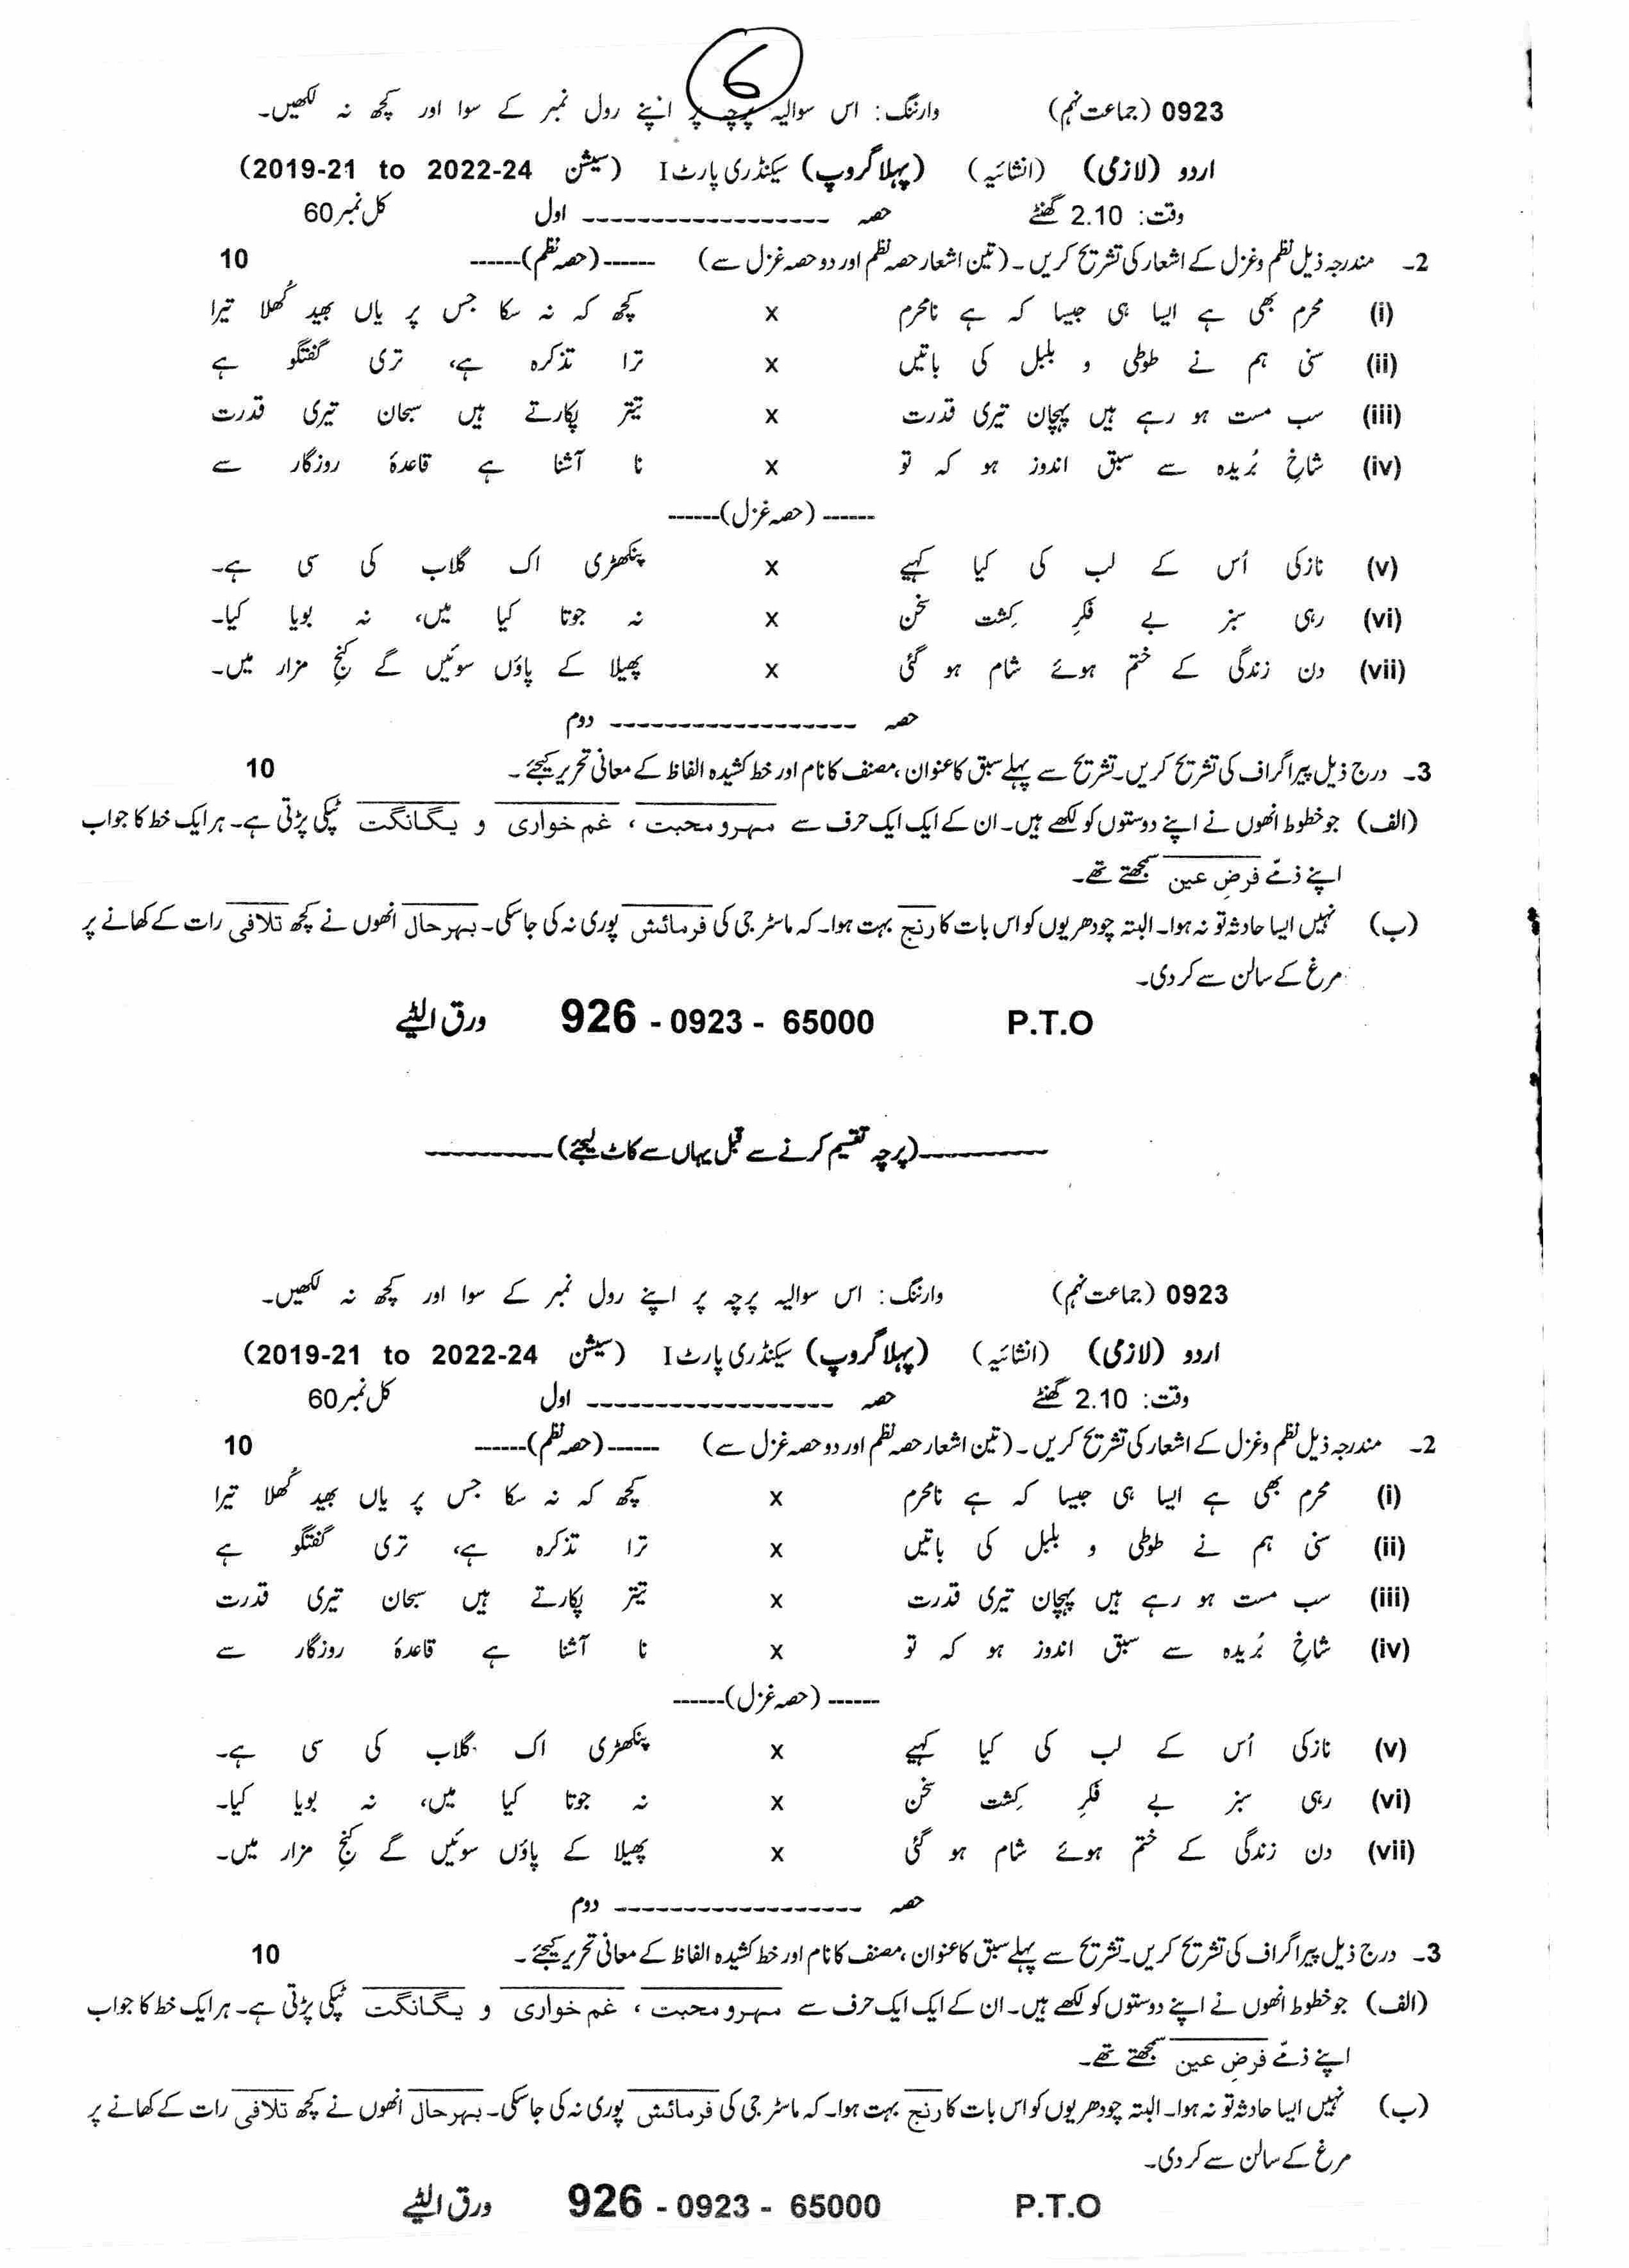 6
0923 (جماعت نہم) وارننگ: اس سوالیہ پرچہ پر اپنے رول نمبر کے سوا اور کچھ نہ لکھیں۔
اردو (لازمی) (انشائیہ) (پہلا گروپ) سیکنڈری پارٹ I (سیشن 2019-21 to 2022-24)
وقت: 2.10 گھنٹے حصہ ------------------ اول کل نمبر 60
2۔ مندرجہ ذیل نظم و غزل کے اشعار کی تشریح کریں۔ (تین اشعار حصہ نظم اور دو حصہ غزل سے) ------(حصہ نظم)------ 10
(i) محرم بھی ہے ایسا ہی جیسا کہ ہے نامحرم x کچھ کہ نہ سکا جس پر یاں بھید کُھلا تیرا
(ii) سنی ہم نے طوطی و بلبل کی باتیں x ترا تذکرہ ہے، تری گفتگو ہے
(iii) سب مست ہو رہے ہیں پہچان تیری قدرت x تیتر پکارتے ہیں سبحان تیری قدرت
(iv) شاخِ بُریدہ سے سبق اندوز ہو کہ تو x نا آشنا ہے قاعدۂ روزگار سے
------(حصہ غزل)------
(v) نازکی اُس کے لب کی کیا کہیے x پنکھڑی اک گلاب کی سی ہے۔
(vi) رہی سبز بے فکرِ کِشت سخن x نہ جوتا کیا میں، نہ بویا کیا۔
(vii) دن زندگی کے ختم ہوئے شام ہو گئی x پھیلا کے پاؤں سوئیں گے کنجِ مزار میں۔
حصہ ------------------ دوم
3۔ درج ذیل پیراگراف کی تشریح کریں۔ تشریح سے پہلے سبق کا عنوان، مصنف کا نام اور خط کشیدہ الفاظ کے معانی تحریر کیجئے۔ 10
(الف) جو خطوط انھوں نے اپنے دوستوں کو لکھے ہیں۔ ان کے ایک ایک حرف سے مہر و محبت، غم خواری و یگانگت ٹپکی پڑتی ہے۔ ہر ایک خط کا جواب
اپنے ذمّے فرضِ عین سمجھتے تھے۔
(ب) نہیں ایسا حادثہ تو نہ ہوا۔ البتہ چودھریوں کو اس بات کا رنج بہت ہوا۔ کہ ماسٹر جی کی فرمائش پوری نہ کی جا سکی۔ بہرحال انھوں نے کچھ تلافی رات کے کھانے پر
مرغ کے سالن سے کر دی۔
P.T.O 926 - 0923 - 65000 ورق الٹیے
----------(پرچہ تقسیم کرنے سے قبل یہاں سے کاٹ لیجئے)----------
0923 (جماعت نہم) وارننگ: اس سوالیہ پرچہ پر اپنے رول نمبر کے سوا اور کچھ نہ لکھیں۔
اردو (لازمی) (انشائیہ) (پہلا گروپ) سیکنڈری پارٹ I (سیشن 2019-21 to 2022-24)
وقت: 2.10 گھنٹے حصہ ------------------ اول کل نمبر 60
2۔ مندرجہ ذیل نظم و غزل کے اشعار کی تشریح کریں۔ (تین اشعار حصہ نظم اور دو حصہ غزل سے) ------(حصہ نظم)------ 10
(i) محرم بھی ہے ایسا ہی جیسا کہ ہے نامحرم x کچھ کہ نہ سکا جس پر یاں بھید کُھلا تیرا
(ii) سنی ہم نے طوطی و بلبل کی باتیں x ترا تذکرہ ہے، تری گفتگو ہے
(iii) سب مست ہو رہے ہیں پہچان تیری قدرت x تیتر پکارتے ہیں سبحان تیری قدرت
(iv) شاخِ بُریدہ سے سبق اندوز ہو کہ تو x نا آشنا ہے قاعدۂ روزگار سے
------(حصہ غزل)------
(v) نازکی اُس کے لب کی کیا کہیے x پنکھڑی اک گلاب کی سی ہے۔
(vi) رہی سبز بے فکرِ کِشت سخن x نہ جوتا کیا میں، نہ بویا کیا۔
(vii) دن زندگی کے ختم ہوئے شام ہو گئی x پھیلا کے پاؤں سوئیں گے کنجِ مزار میں۔
حصہ ------------------ دوم
3۔ درج ذیل پیراگراف کی تشریح کریں۔ تشریح سے پہلے سبق کا عنوان، مصنف کا نام اور خط کشیدہ الفاظ کے معانی تحریر کیجئے۔ 10
(الف) جو خطوط انھوں نے اپنے دوستوں کو لکھے ہیں۔ ان کے ایک ایک حرف سے مہر و محبت، غم خواری و یگانگت ٹپکی پڑتی ہے۔ ہر ایک خط کا جواب
اپنے ذمّے فرضِ عین سمجھتے تھے۔
(ب) نہیں ایسا حادثہ تو نہ ہوا۔ البتہ چودھریوں کو اس بات کا رنج بہت ہوا۔ کہ ماسٹر جی کی فرمائش پوری نہ کی جا سکی۔ بہرحال انھوں نے کچھ تلافی رات کے کھانے پر
مرغ کے سالن سے کر دی۔
P.T.O 926 - 0923 - 65000 ورق الٹیے